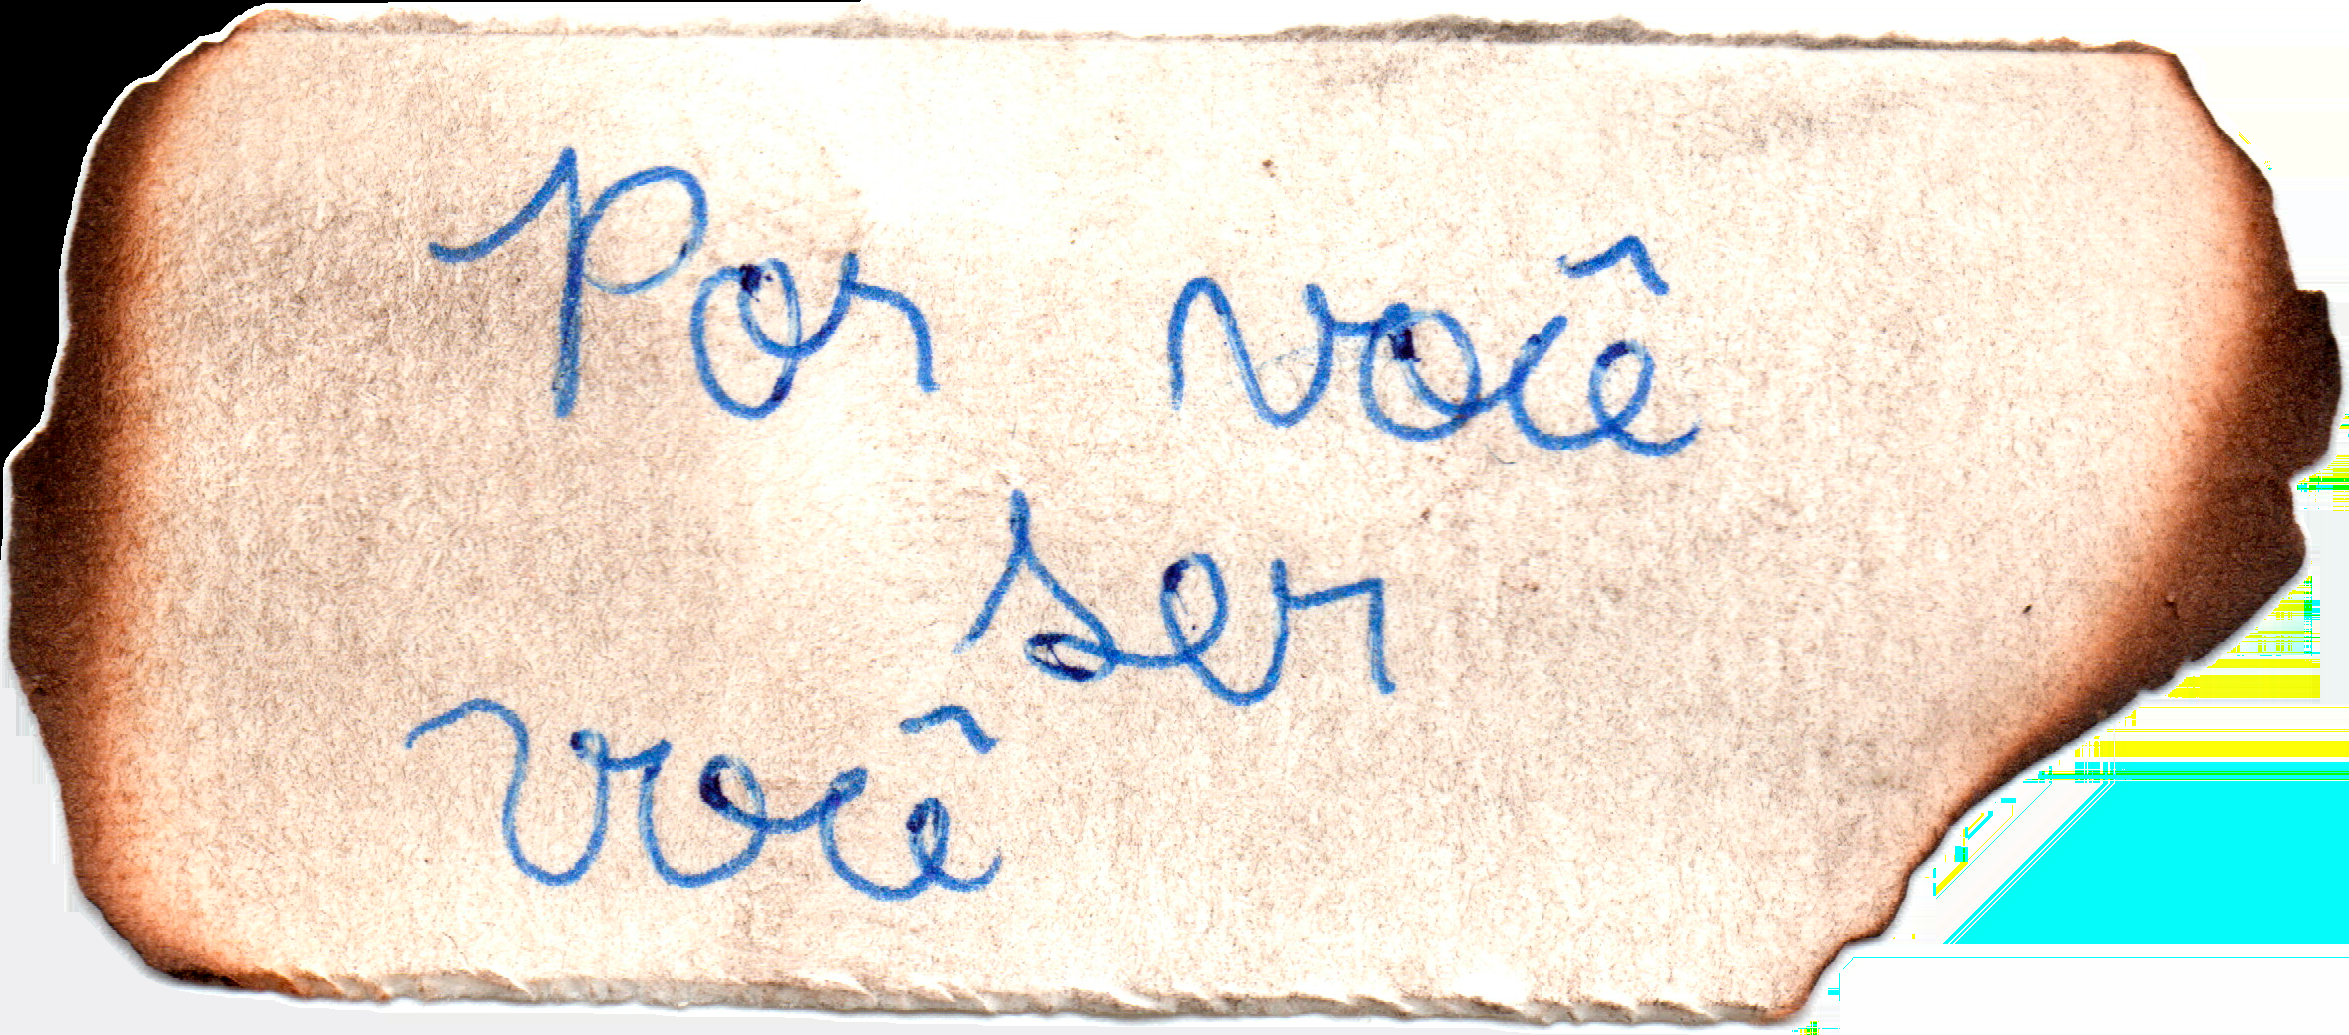 Por você
ser
você